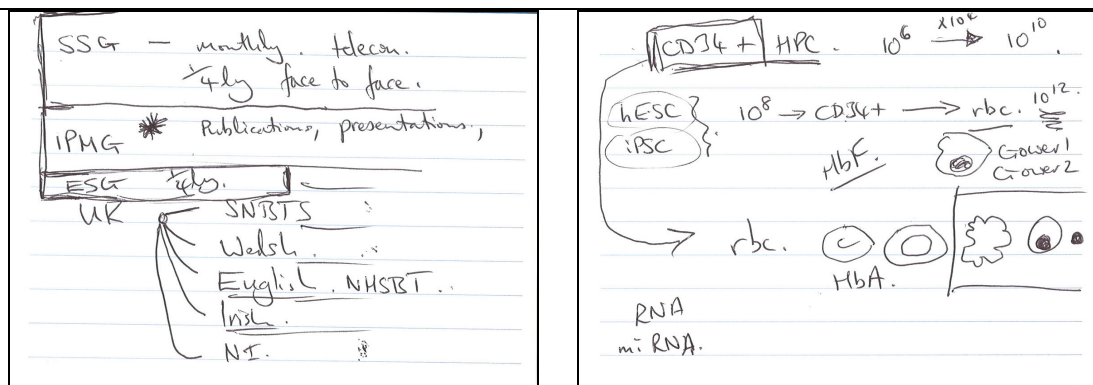 SSG — monthly. telecon.
1/4ly face to face.
IPMG * Publications, presentations,
ESG 1/4ly.
UK SNBTS
Welsh.
English. NHSBT..
Irish.
NI.
CD34+ HPC. 10⁶ x10⁴ → 10¹⁰.
hESC
iPSC
10⁸ → CD34+ → rbc. 10¹².
HbF.
Gower1
Gower2
rbc.
HbA.
RNA
miRNA.